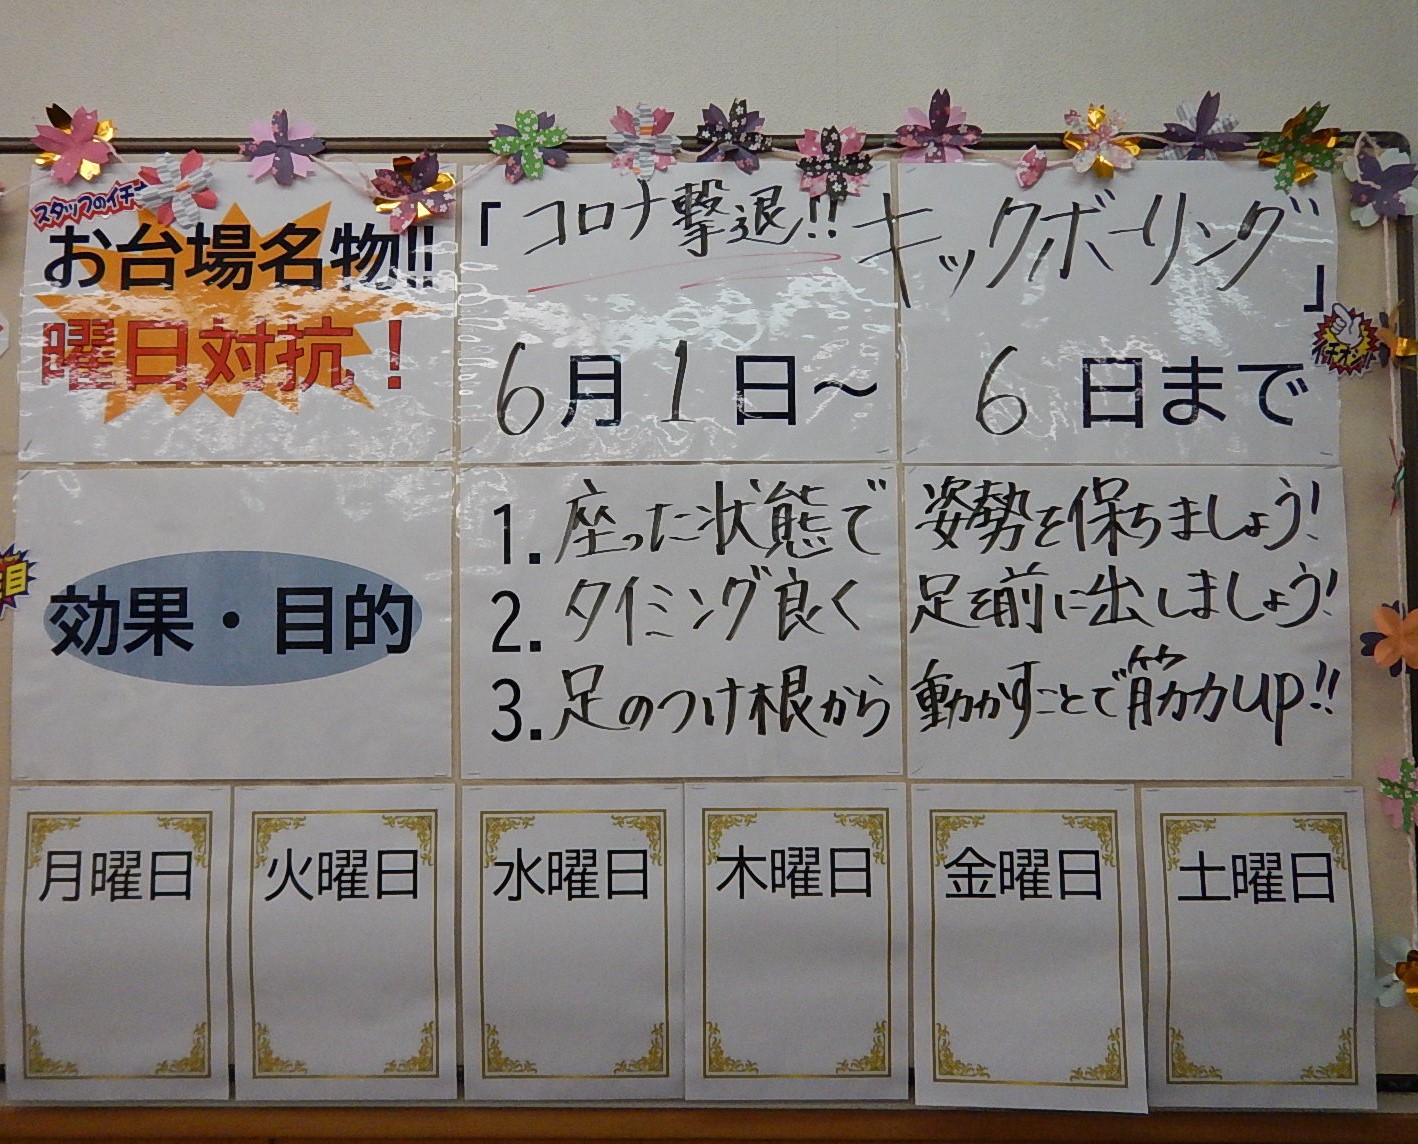 スタッフのイチ
お台場名物!!
曜日対抗！
「コロナ撃退!!キックボーリング」
6月1日～6日まで
イチオシ
効果・目的
1.座った状態で姿勢を保ちましょう!
2.タイミング良く足を前に出しましょう!
3.足のつけ根から動かすことで筋力up!!
目
月曜日 火曜日 水曜日 木曜日 金曜日 土曜日